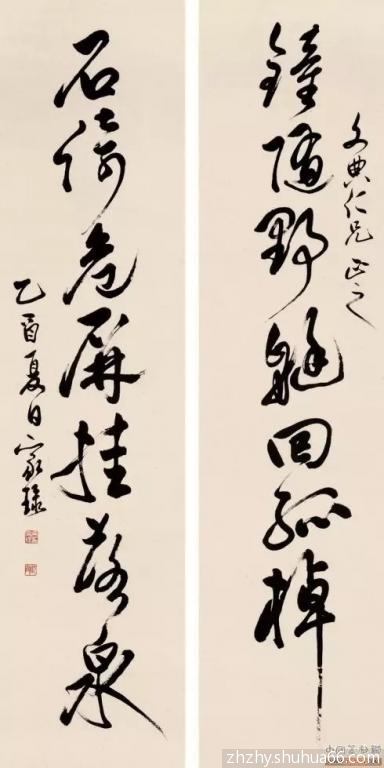 鐘隨野艇回孤棹
文典仁兄正之
石倚危屏挂落泉
乙酉夏日家
zhzhy.shuhua66.com